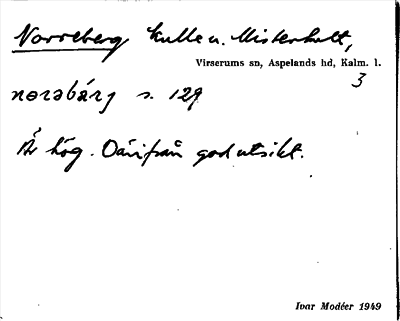 Norreberg Kulle u. Misterhult,
Virserums sn, Aspelands hd, Kalm. l.
3
nɵrəbárj s. 129
Är hög. Därifrån god utsikt.
Ivar Modéer 1949